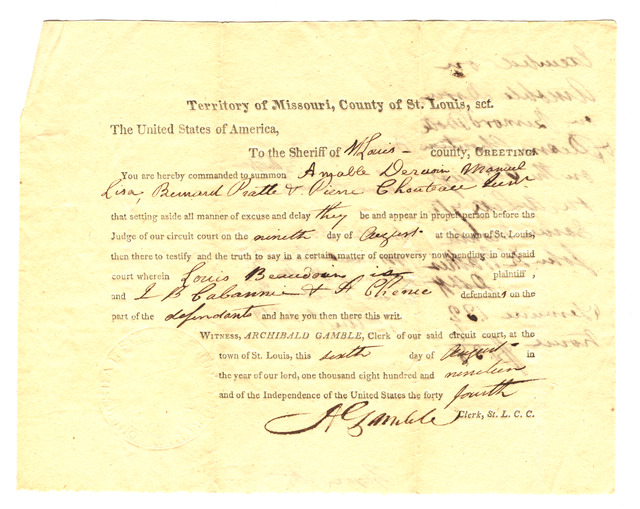 Territory of Missouri, County of St. Louis, sct.
The United States of America,
To the Sheriff of St Louis – county, GREETING:
You are hereby commanded to summon Amable Manuel
Lisa, Bernard Pratte & Pierre Chouteau Junr
that setting aside all manner of excuse and delay they be and appear in proper person before the
Judge of our circuit court on the nineth day of August at the town of St. Louis,
then there to testify and the truth to say in a certain matter of controversy now pending in our said
court wherein Louis Beaudoin is plaintiff,
and J B Cabannie & A Chenie defendants on the
part of the defendants and have you then there this writ.
WITNESS, ARCHIBALD GAMBLE, Clerk of our said circuit court, at the
town of St. Louis, this sixth day of August in
the year of our lord, one thousand eight hundred and nineteen
and of the Independence of the United States the forty fourth
A Gamble Clerk, St. L. C. C.